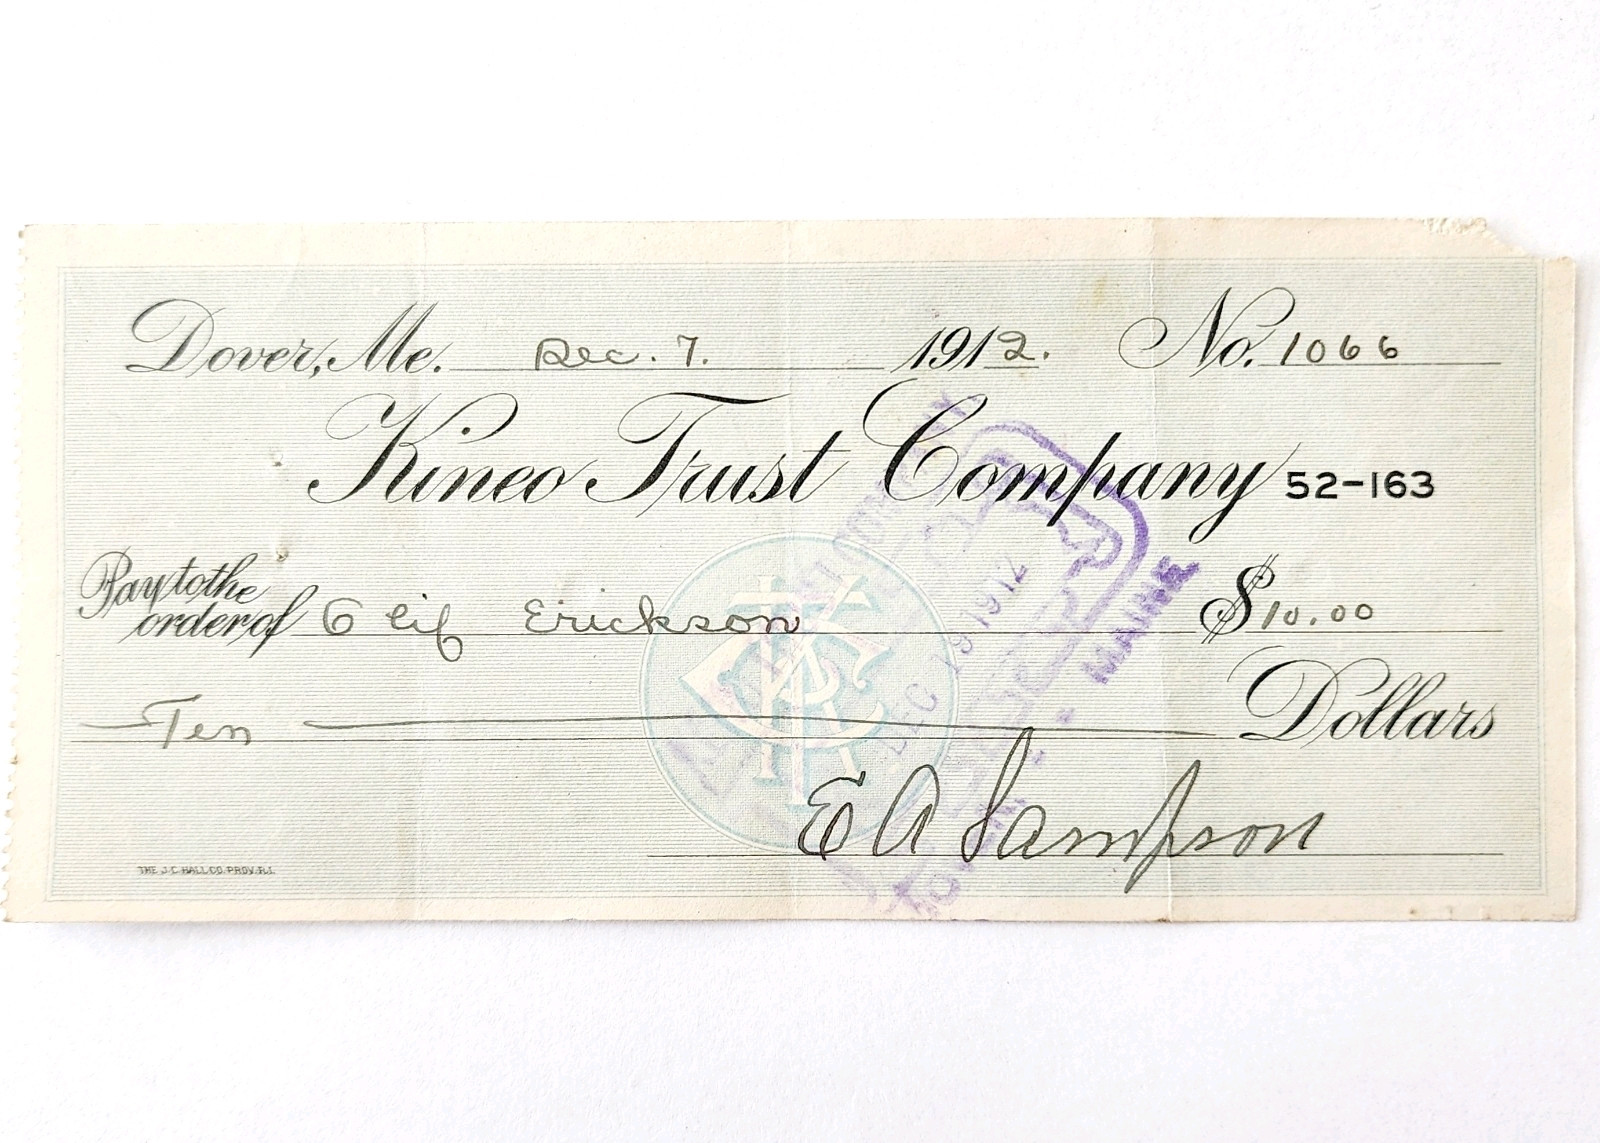 Dover, Me. Dec. 7. 1912. No. 1066
Kineo Trust Company 52-163
Pay to the
order of Olif Erickson $10.00
Ten Dollars
E A Sampson
THE J.C. HALL CO. PROV. R.I.
DEC 19 1912
MAINE